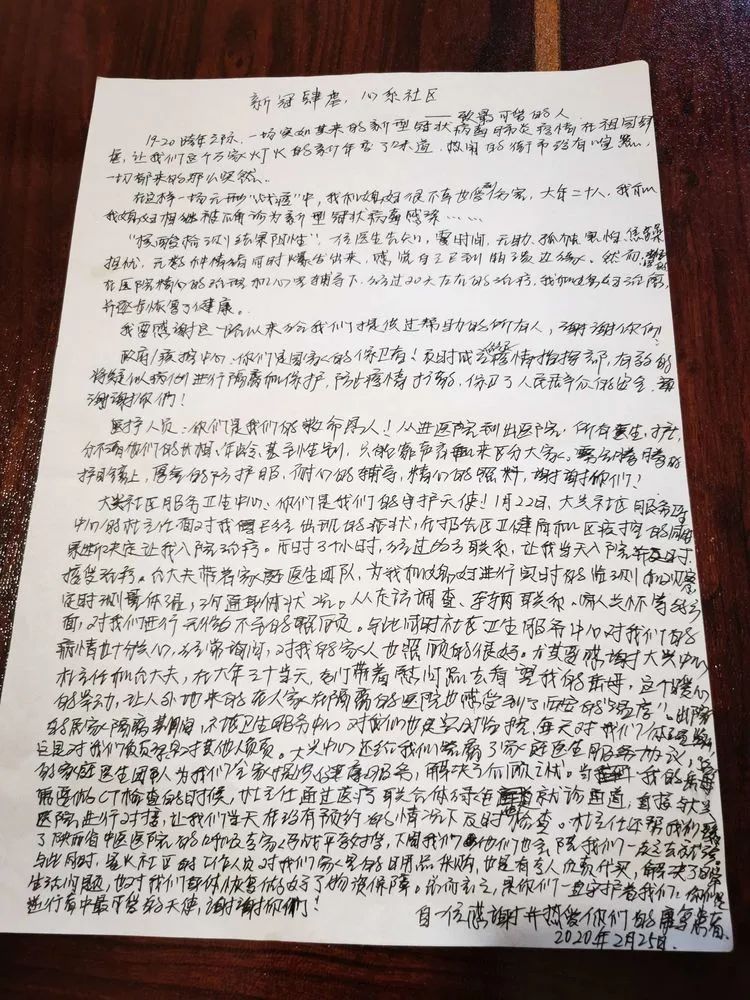 新冠肆虐，心系社区
——致最可爱的人
19-20跨年之际，一场突如其来的新型冠状病毒肺炎疫情在祖国肆
虐，让我们这个万家灯火的新年变了味道，热闹的街市没有了喧嚣，
一切都来的那么突然。
在这样一场无形"战疫"中，我和媳妇很不幸也受了伤害，大年二十八，我和
我媳妇相继被确诊为新型冠状病毒感染……
"核酸检测结果阳性"，一位医生告知，霎时间，无助、孤独、害怕、焦躁
担忧，无数种情绪同时爆发出来，感觉自己已到崩溃边缘。然而，
在医院精心的治疗和心里辅导下，经过20天左右的治疗，我和媳妇治愈，
并逐步恢复了健康。
我要感谢这一路以来给我们提供过帮助的所有人，谢谢你们！
政府/疾控中心：你们是国家的保卫者！及时成立疫情指挥部，有效的
将疑似病例进行隔离和保护，防止疫情扩散，保卫了人民群众的安全，
谢谢你们！
医护人员：你们是我们的救命恩人！从进医院到出医院，所有医生、护士，
分不清他们的长相、年龄、甚至性别，只能靠声音来区分大家。雾气腾腾的
护目镜上，厚实的防护服，耐心的辅导，精心的照料，谢谢你们！
大兴社区服务卫生中心：你们是我们的守护天使！1月22日，大兴社区服务卫生
中心的杜主任面对我已经出现的症状，在报告区卫健局和区疾控的同时
果断决定让我入院治疗。历时7小时，经过多方联系，让我当天入院并及时
接受治疗。大夫带着家庭医生团队，为我和媳妇进行实时的监测和观察
定时测量体温，沟通身体状况。从走访调查、车辆联系、病人关怀等各方
面，对我们进行无微不至的照顾。与此同时社区卫生服务中心对我们的
病情也十分关心，经常询问，对我的家人也照顾的很好。尤其要感谢大兴中心
杜主任和大夫，在大年三十当天，专门带着慰问品去看望我的岳母，这个暖心
的举动，让人外地来的在人家在隔离的医院也感受到了西安的"温度"。出院后
的居家隔离期间，社区卫生服务中心对我们也是实时监控，每天对我们
这是对我们负责，更是对其他人负责。大兴中心还给我们签署了家庭医生服务协议，
的家庭医生团队为我们全家提供健康服务，解决了后顾之忧。当我的岳母
需要做CT检查的时候，杜主任通过医疗联合体绿色就诊通道，直接与大兴
医院进行对接，让我们当天在没有预约的情况下及时检查。杜主任还帮我们
了陕西省中医医院的呼吸专家远战平教授，
与此同时，社区的工作人员对我们家里的日用品采购，也是有专人负责代买，解决了
生活问题，也对我们身体恢复做好了物资保障。总而言之，是你们一直守护着我们，你们是
逆行者中最可爱的天使，谢谢你们！
自一位感谢并热爱你们的康复患者
2020年2月25日.